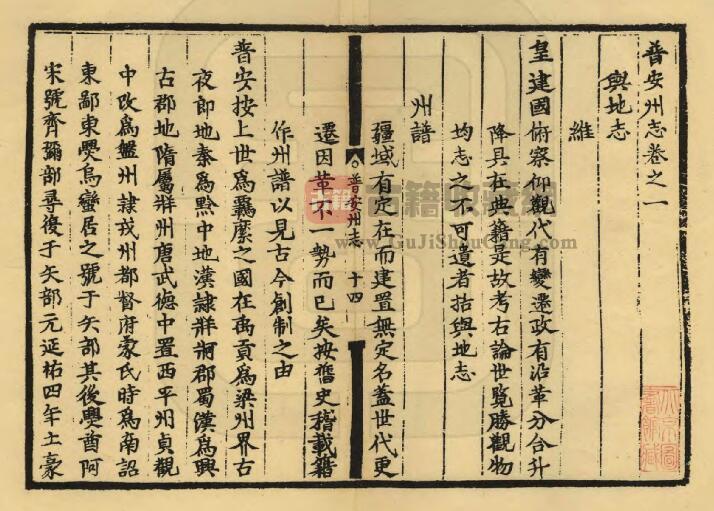 普安州志卷之一
輿地志
維
皇建國俯察仰觀代有變遷政有沿革分合升
降具在典籍是故考右論世覽勝觀物
均志之不可遺者括輿地志
州譜
疆域有定在而建置無定名蓋世代更
遷因革不一勢而已矣按舊史稽載籍
作州譜以見古今創制之由
普安州志
十四
普安按上世爲羈縻之國在禹貢爲梁州界古
夜郎地秦爲黔中地漢隸牂牁郡蜀漢爲興
古郡地隋屬牂州唐武德中置西平州貞觀
中改爲盤州隸戎州都督府蒙氏時爲南詔
東鄙東爨烏蠻居之號于矢部其後爨酋阿
宋號齊彌部尋復于矢部元延祐四年土豪
www.GuJiShouCang.com